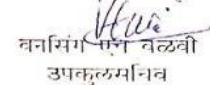 वनसिंग एन वळवी
उपकुलसचिव